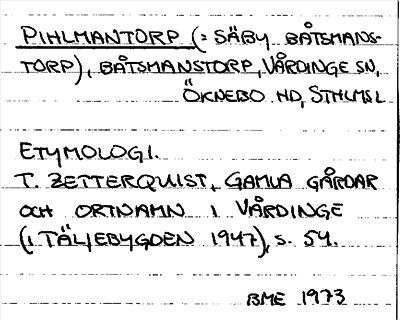 PIHLMANTORP (= SÄBY BÅTSMANS-
TORP), BÅTSMANSTORP, VÅRDINGE SN,
ÖKNEBO HD, STHLMS L
ETYMOLOGI.
T. ZETTERQUIST, GAMLA GÅRDAR
OCH ORTNAMN I VÅRDINGE
(I TÄLJEBYGDEN 1947), S. 54.
BME 1973